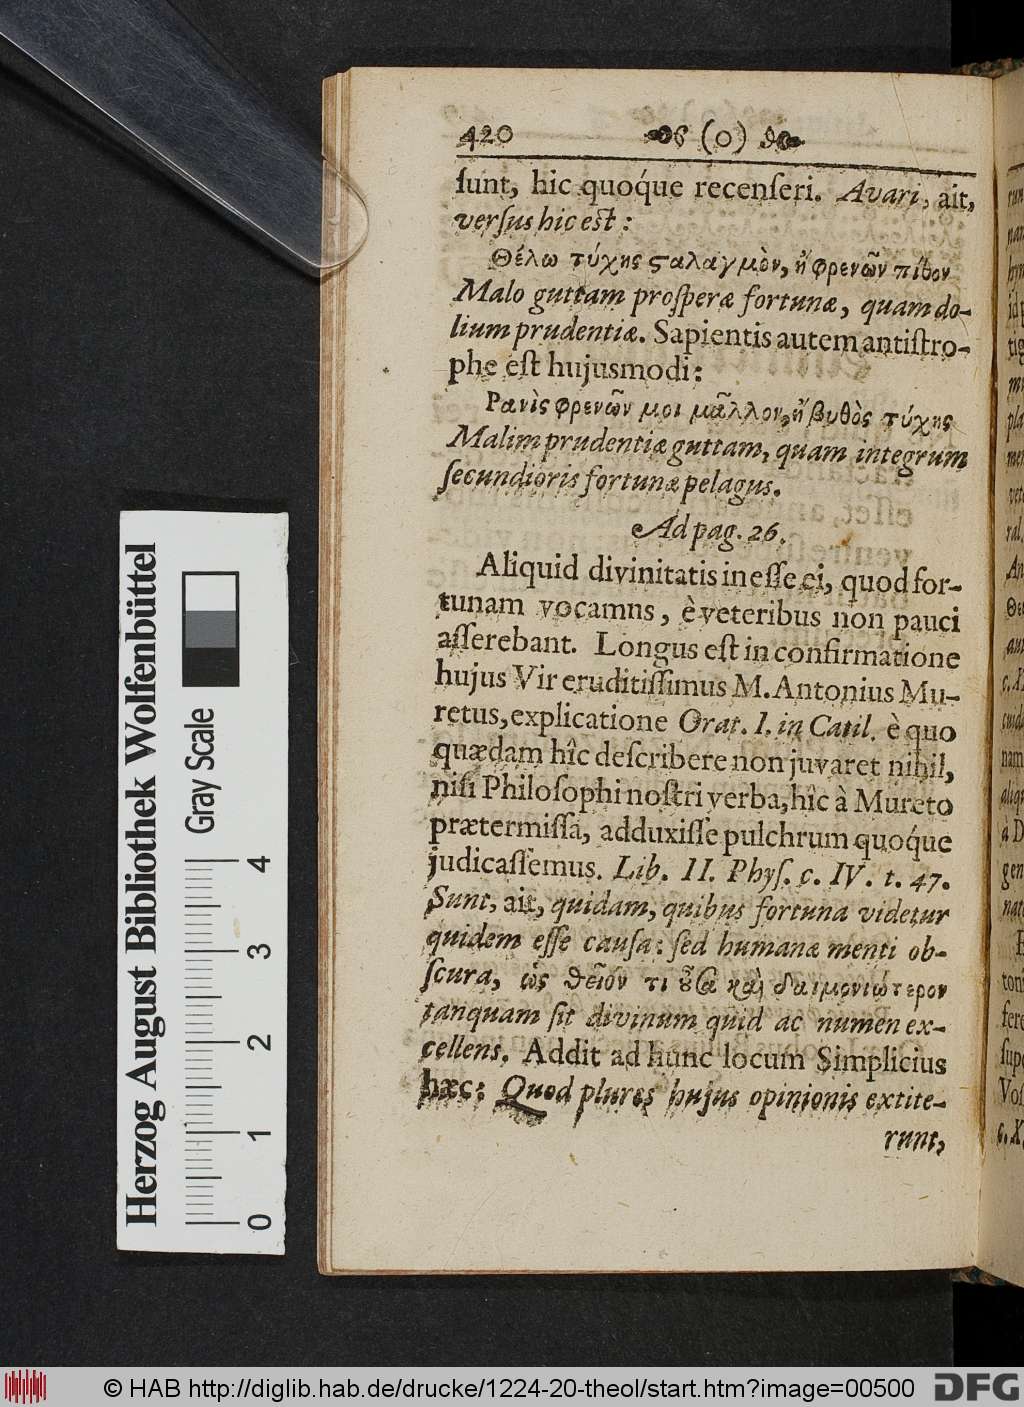 420 (o)
ſunt, hic quoq́ue recenſeri. Avari, ait,
verſus hic eſt:
Θέλω τύχης ϛαλαγμὸν, ἢ φρενῶν πίθον
Malo guttam proſperæ fortunæ, quam do-
lium prudentiæ. Sapientis autem antiſtro-
phe eſt hujusmodi:
Ρανὶς φρενῶν μοι μᾶλλον, ἢ βυθὸς τύχης
Malim prudentiæ guttam, quam integrum
ſecundioris fortunæ pelagus.
Ad pag. 26.
Aliquid divinitatis ineſſe ei, quod for-
tunam vocamns, è veteribus non pauci
aſſerebant. Longus eſt in confirmatione
hujus Vir eruditiſſimus M. Antonius Mu-
retus, explicatione Orat. I. in Catil. è quo
quædam hîc deſcribere non juvaret nihil,
niſi Philoſophi noſtri verba, hîc à Mureto
prætermiſſa, adduxiſſe pulchrum quoq́ue
judicaſſemus. Lib. II. Phyſ. c. IV. t. 47.
Sunt, ait, quidam, quibus fortuna videtur
quidem eſſe cauſa: ſed humanæ menti ob-
ſcura, ὡς θεῖόν τι οὖσα καὶ δαιμονιώτερον
tanquam ſit divinum quid ac numen ex-
cellens. Addit ad hunc locum Simplicius
hæc: Quod plures hujus opinionis extite-
runt,
Herzog August Bibliothek Wolfenbüttel
Gray Scale
0 1 2 3 4
© HAB http://diglib.hab.de/drucke/1224-20-theol/start.htm?image=00500
DFG